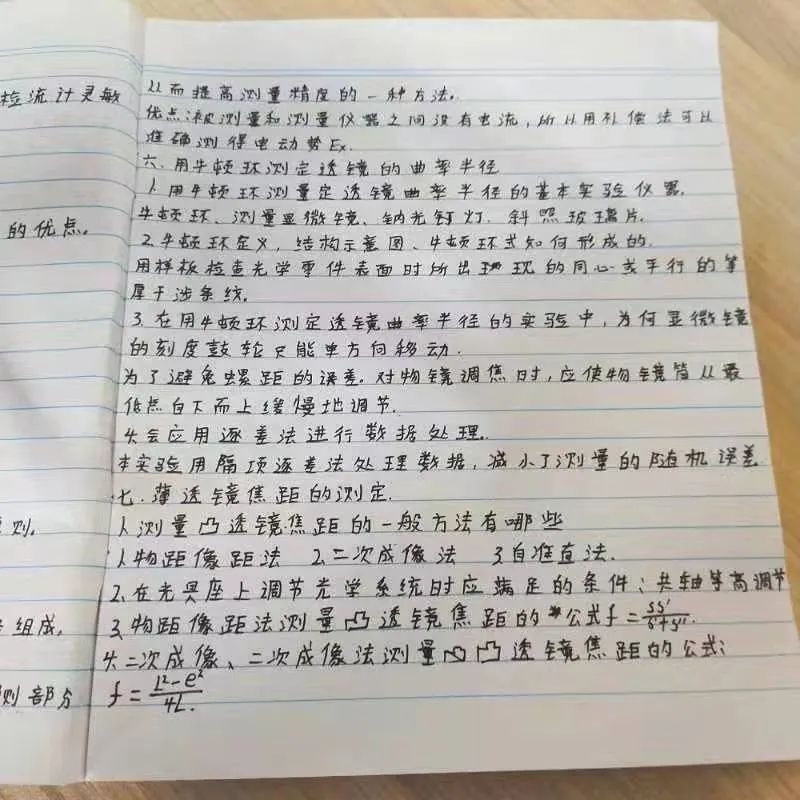 检流计灵敏
的优点。
则.
组成,
则部分
从而提高测量精度的一种方法。
优点:被测量和测量仪器之间没有电流,所以用补偿法可以
准确测得电动势Ex.
六.用牛顿环测定透镜的曲率半径
1.用牛顿环测量定透镜曲率半径的基本实验仪器.
牛顿环、测量显微镜、钠光钉灯.斜照玻璃片.
2.牛顿环定义,结构示意图、牛顿环式如何形成的.
用样板检查光学零件表面时所出现的同心或平行的等
厚干涉条纹.
3.在用牛顿环测定透镜曲率半径的实验中,为何显微镜
的刻度鼓轮只能单方向移动.
为了避免螺距的误差.对物镜调焦时,应使物镜筒从最
低点自下而上缓慢地调节.
4.会应用逐差法进行数据处理.
本实验用隔项逐差法处理数据,减小了测量的随机误差
七.薄透镜焦距的测定.
1.测量凸透镜焦距的一般方法有哪些
1.物距像距法 2.二次成像法 3.自准直法.
2.在光具座上调节光学系统时应满足的条件:共轴等高调节
3.物距像距法测量凸透镜焦距的公式f=ss'/s+s'.
4.二次成像、二次成像法测量凸透镜焦距的公式:
f=L²-e²/4L.